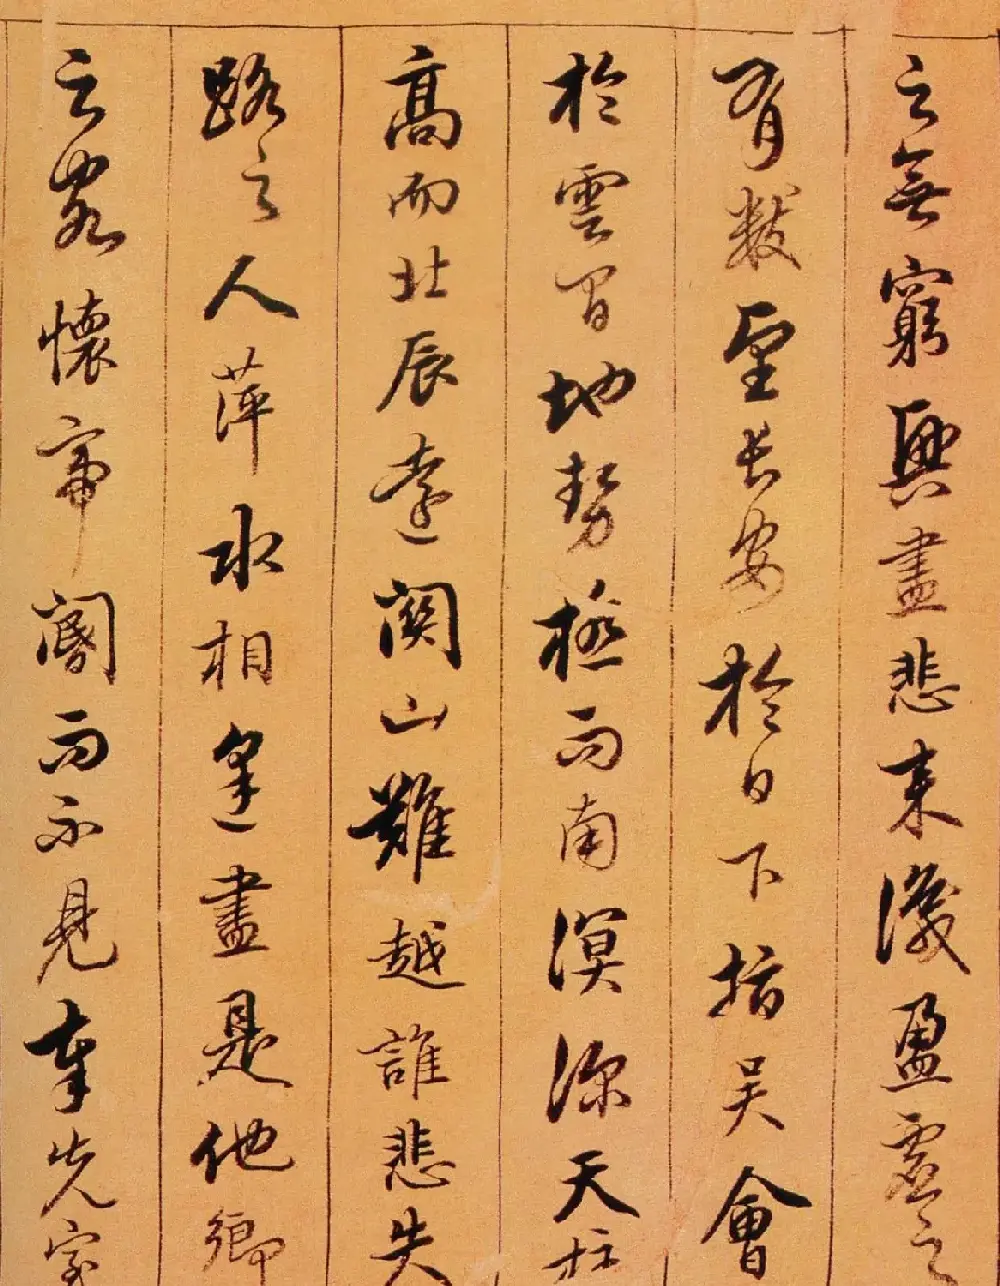 之無窮興盡悲來識盈虛之
有數望長安於日下指吳會
於雲間地勢極而南溟深天柱
高而北辰遠關山難越誰悲失
路之人萍水相逢盡是他鄉
之客懷帝閽而不見奉先室